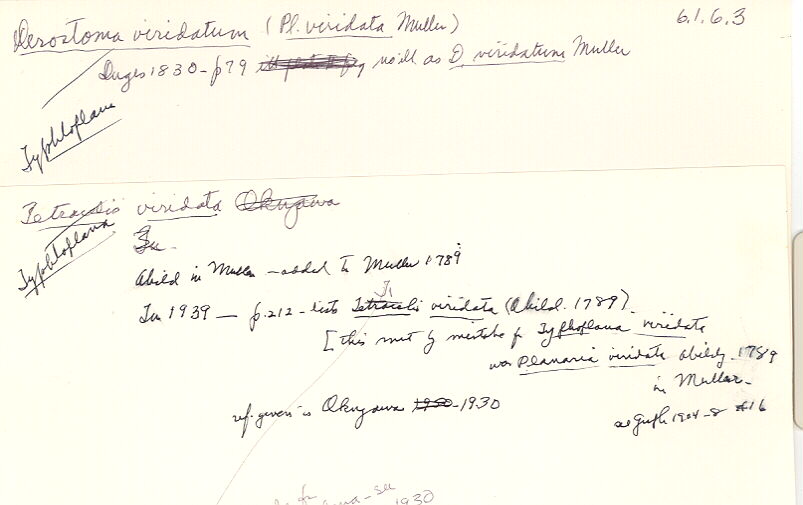 Derostoma viridatum (Pl. viridata Muller) 6.1.6.3
Duges 1830 - p79 no ill as D. viridatum Muller
Typhloplana
Tetracelis viridata Okugawa
Typhloplana
Abild in Muller - added to Muller 1789
1939 - p. 212 - lists Tetracelis viridata (Abild. 1789).
[this must by mistake Typhloplana viridata
was Planaria viridata 1789
in Muller -
ref. given is Okugawa 1930 1904 - 8 #16
1930